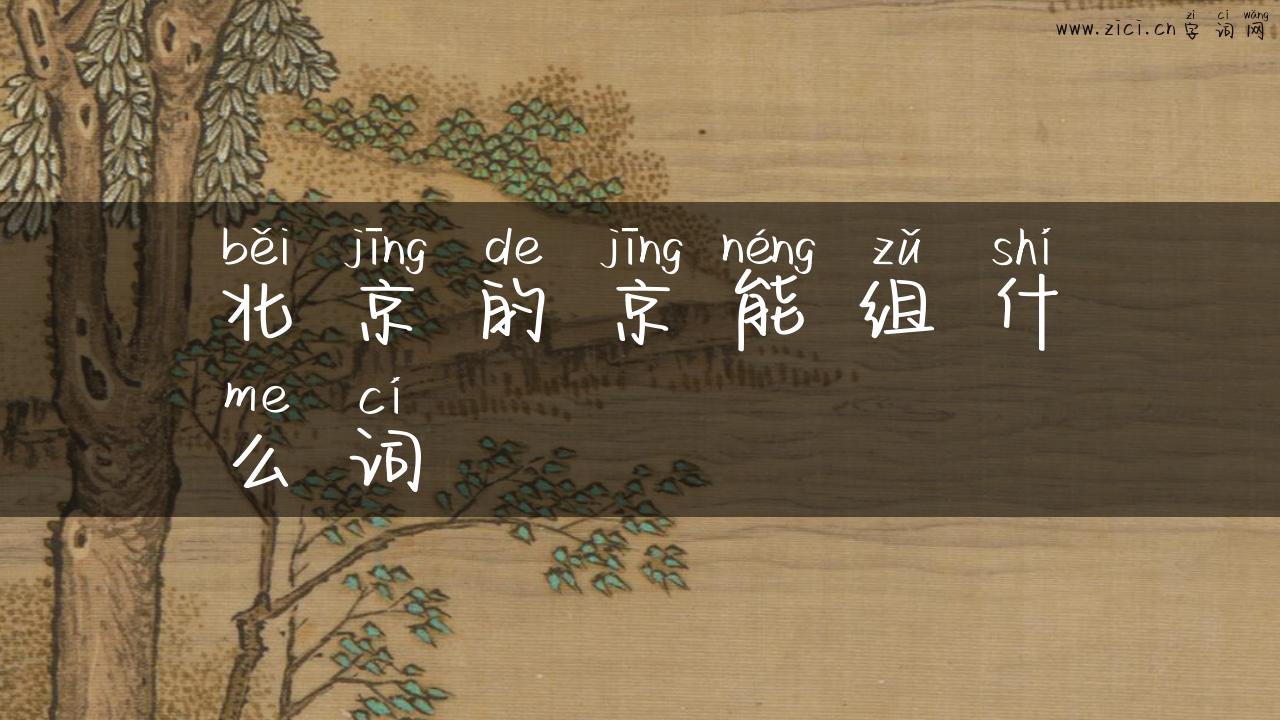 zì cí wǎng
www.zici.cn 字词网
běi jīng de jīng néng zǔ shí
北京的京能组什
me cí
么词